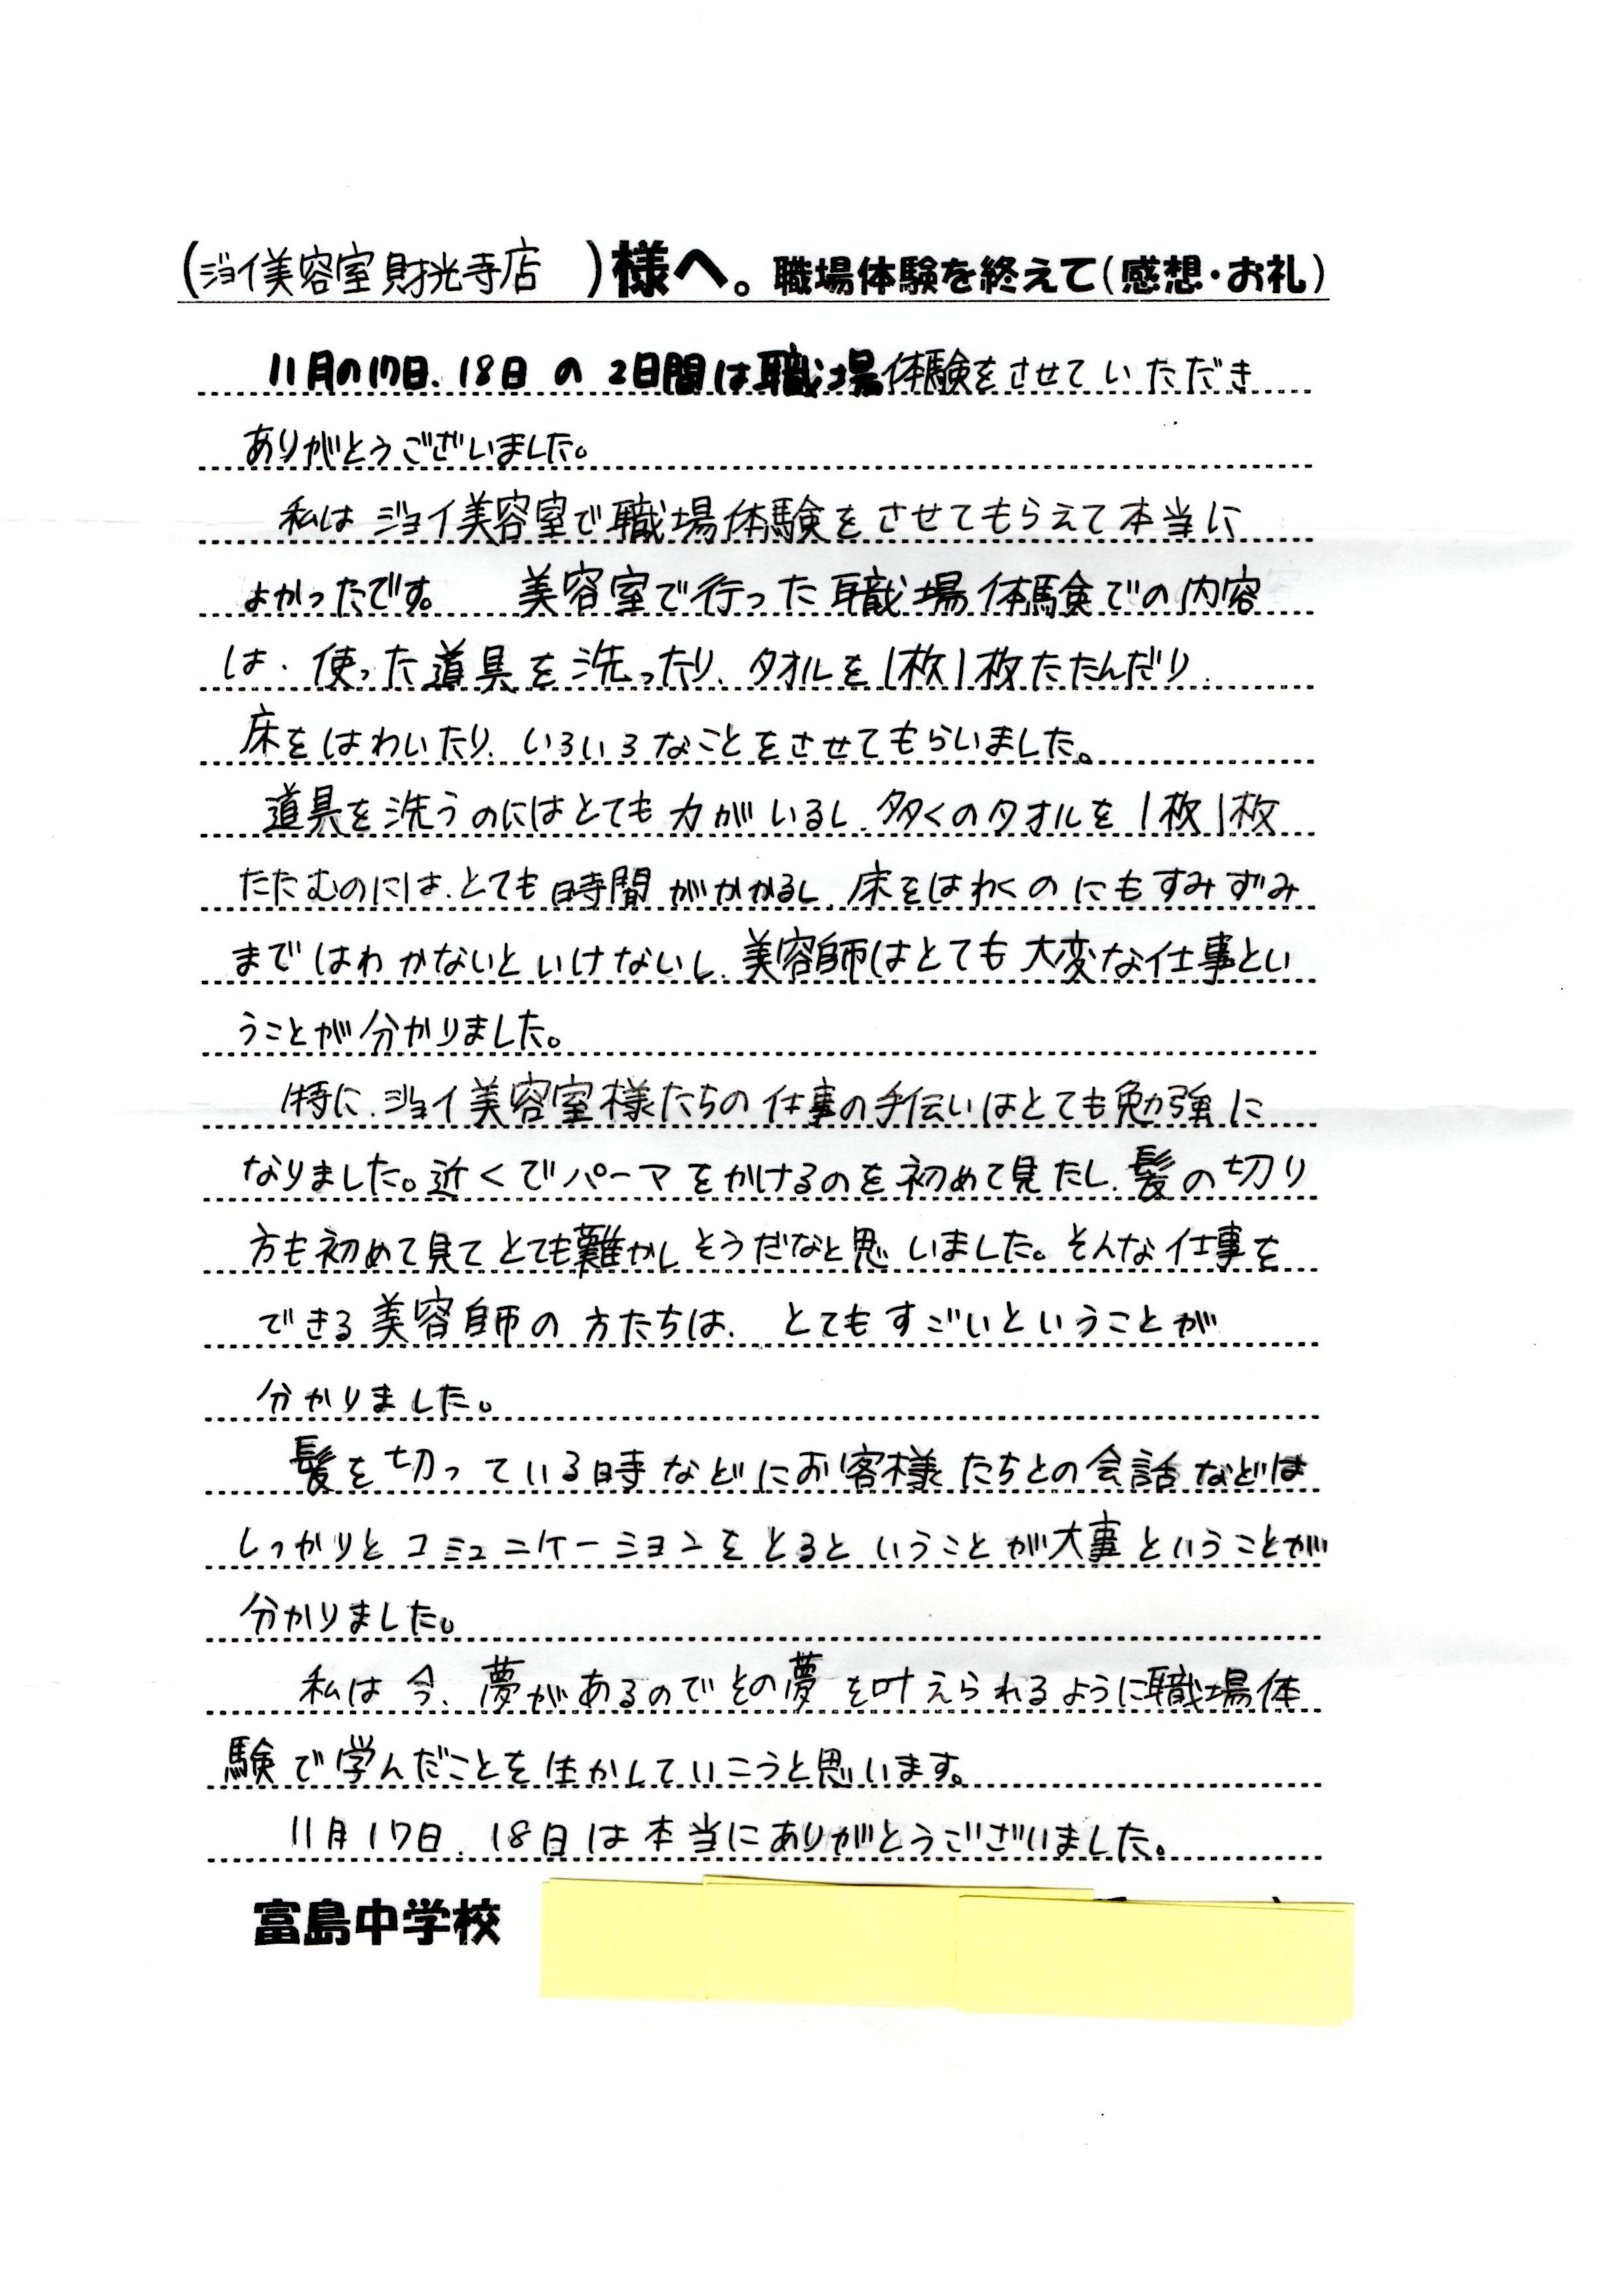 (ジョイ美容室財光寺店　)様へ。職場体験を終えて(感想・お礼)
11月の17日、18日の2日間は職場体験をさせていただき
ありがとうございました。
私はジョイ美容室で職場体験をさせてもらえて本当に
よかったです。　美容室で行った職場体験での内容
は、使った道具を洗ったり、タオルを1枚1枚たたんだり、
床をはわいたり、いろいろなことをさせてもらいました。
道具を洗うのにはとても力がいるし、多くのタオルを1枚1枚
たたむのには、とても時間がかかるし、床をはわくのにもすみずみ
まではわかないといけないし、美容師はとても大変な仕事とい
うことが分かりました。
特に、ジョイ美容室様たちの仕事の手伝いはとても勉強に
なりました。近くでパーマをかけるのを初めて見たし、髪の切り
方も初めて見てとても難かしそうだなと思いました。そんな仕事を
できる美容師の方たちは、とてもすごいということが
分かりました。
髪を切っている時などにお客様たちとの会話などは
しっかりとコミュニケーションをとるということが大事ということが
分かりました。
私は今、夢があるのでその夢を叶えられるように職場体
験で学んだことを生かしていこうと思います。
11月17日、18日は本当にありがとうございました。
富島中学校